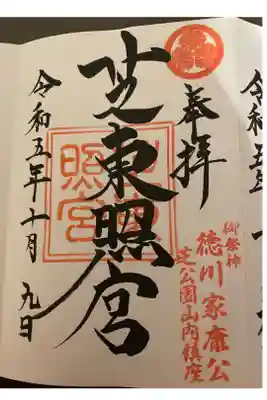 奉拝
御祭神
徳川家康公
芝公園山内鎮座
芝東照宮
令和五年十月九日